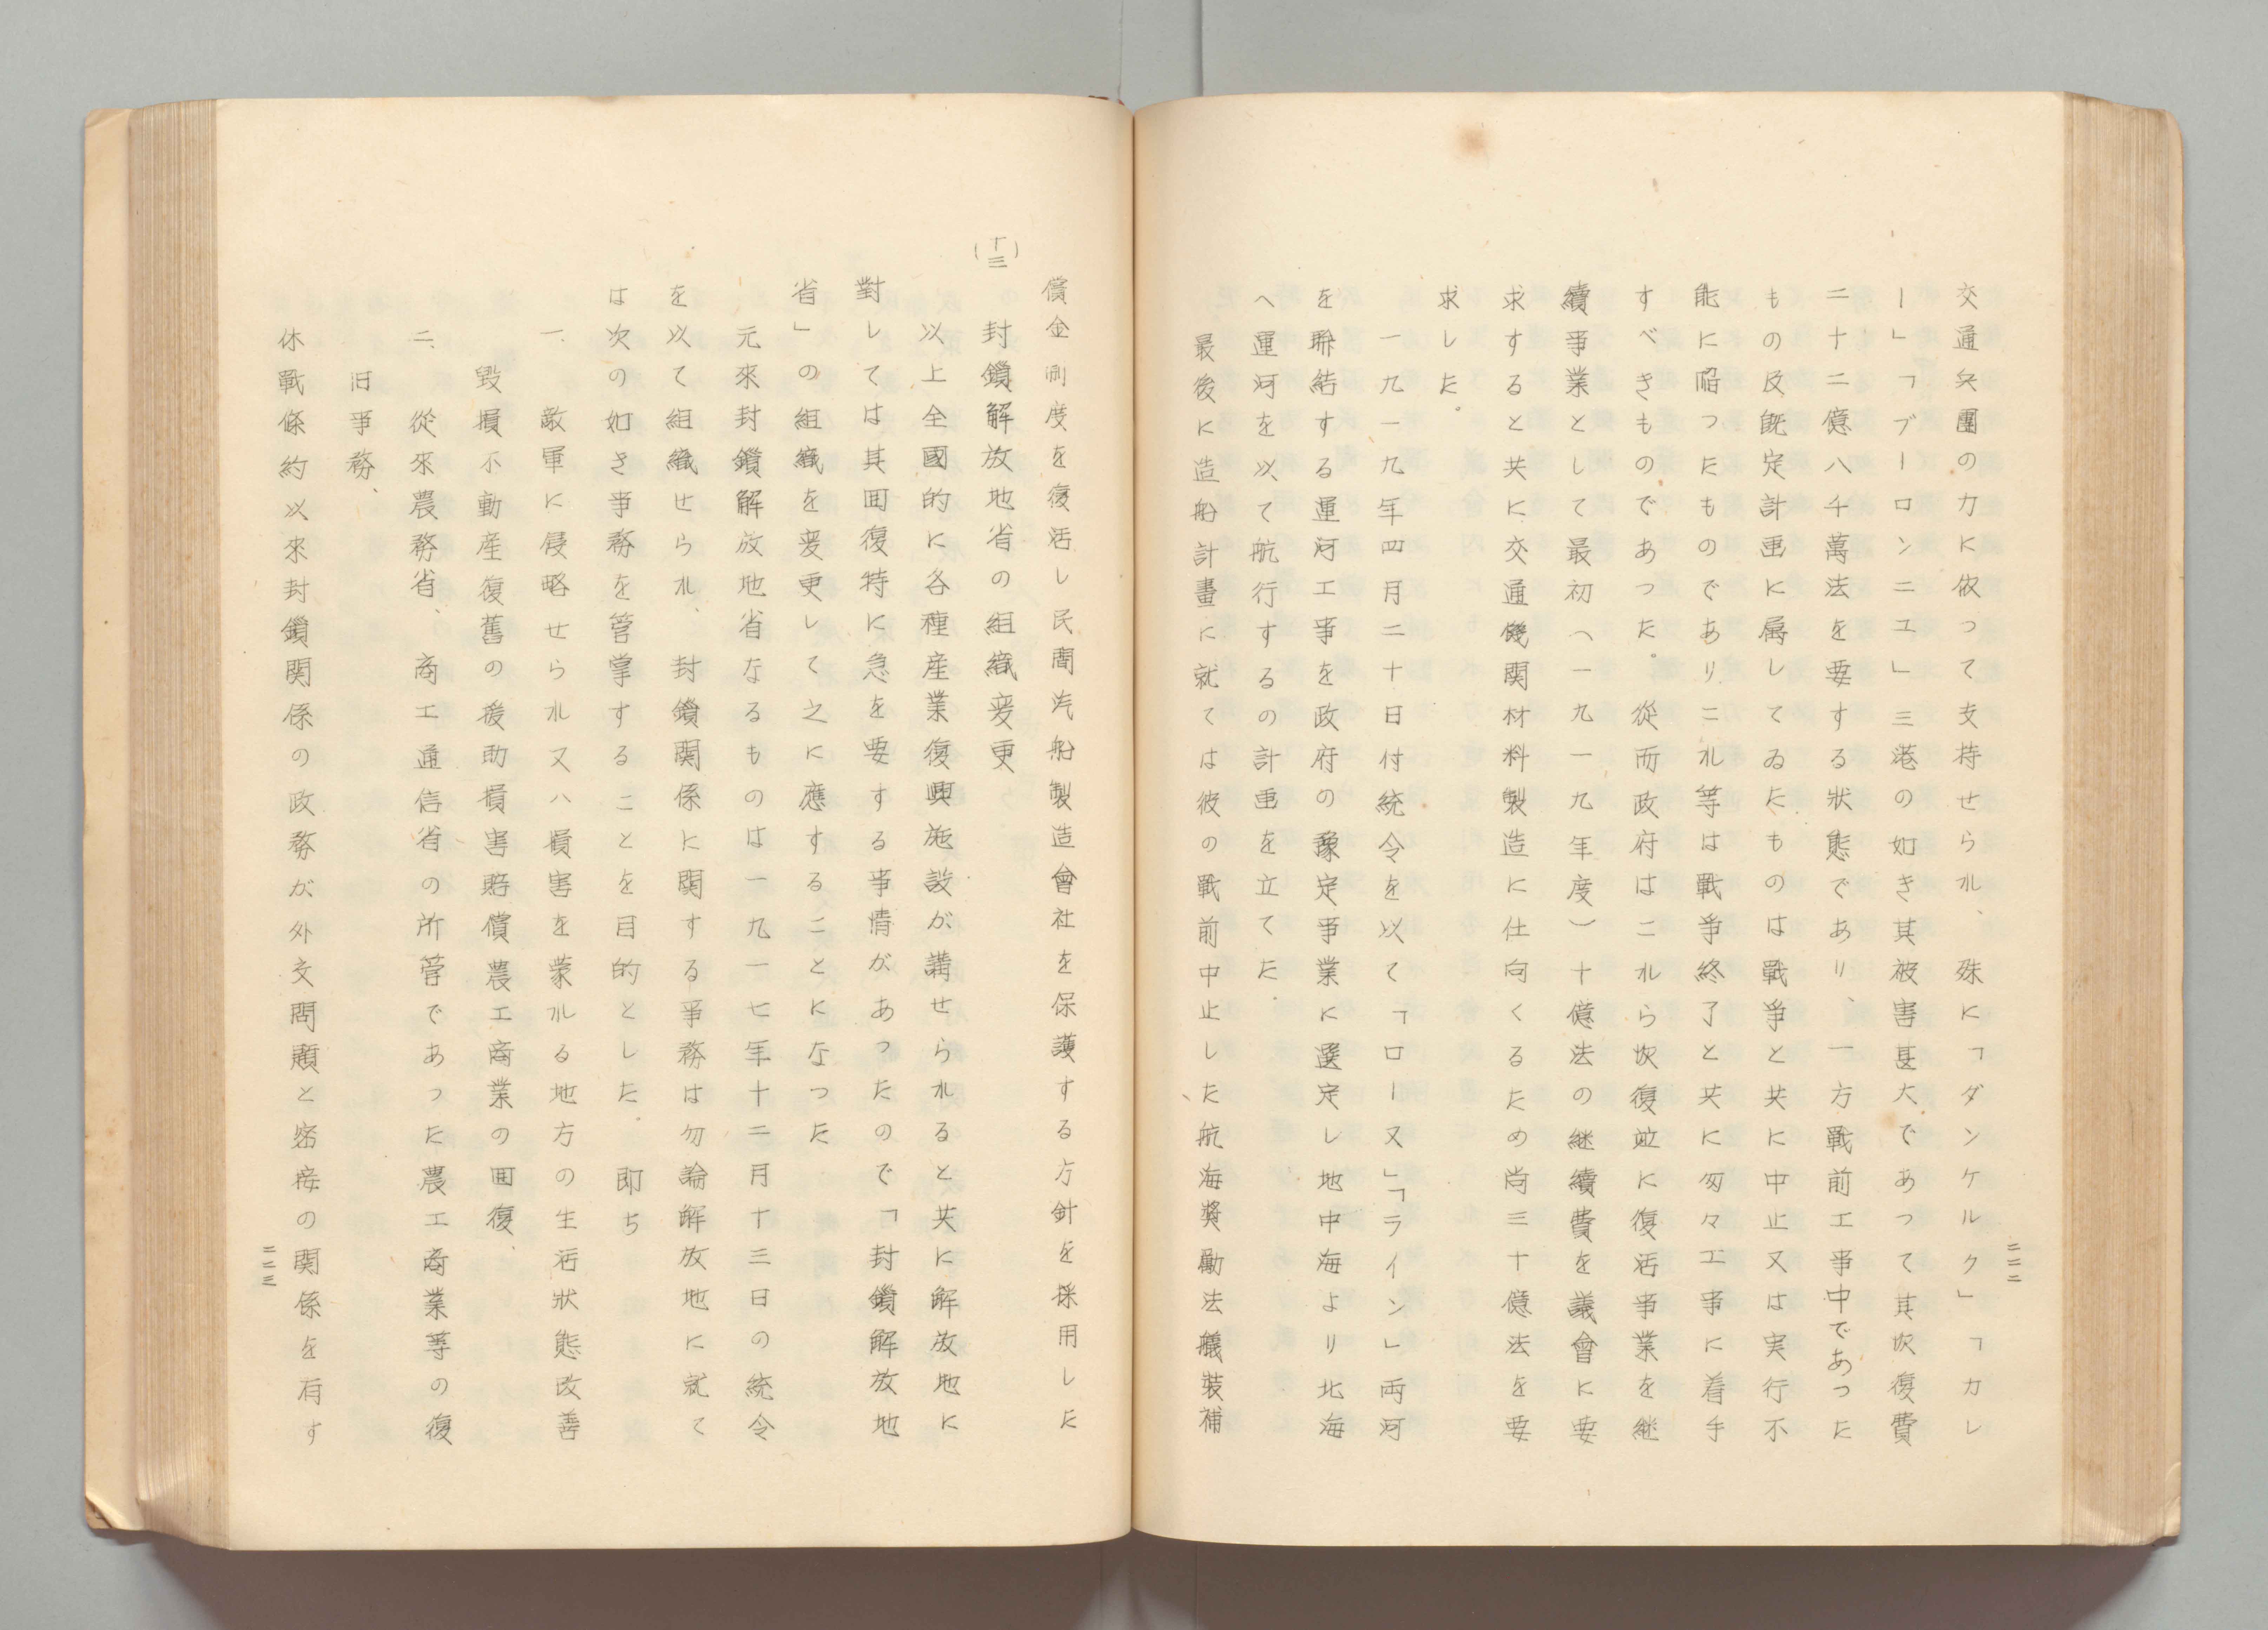 二二二
交通兵團の力に依って支持せられ、殊に「ダンケルク」「カレ
ー」「ブーロンニエ」三港の如き其被害甚大であって其恢復費
二十二億八千萬法を要する狀態であり、一方戰前工事中であった
もの及既定計画に属してゐたものは戰爭と共に中止又は実行不
能に陥ったものでありこれ等は戰爭終了と共に匆々工事に着手
すべきものであった。従而政府はこれら恢復竝に復活事業を継
續事業として最初（一九一九年度）十億法の継續費を議會に要
求すると共に交通機関材料製造に仕向くるため尚三十億法を要
求した。
一九一九年四月二十日付統令を以て「ローヌ」「ライン」両河
を聯結する運河工事を政府の豫定事業に選定し地中海より北海
へ運河を以て航行するの計画を立てた．
最後に造船計畫に就ては彼の戰前中止した航海奬勵法艤装補
償金制度を復活し民間汽船製造會社を保護する方針を採用した
（十三）封鎖解放地省の組織変更
以上全國的に各種産業復興施設が講せられると共に解放地に
對しては其囬復特に急を要する事情があったので「封鎖解放地
省」の組織を変更して之に應することになった
元來封鎖解放地省なるものは一九一七年十二月十三日の統令
を以て組織せられ、封鎖関係に関する事務は勿論解放地に就て
は次の如き事務を管掌することを目的とした．即ち
一、敵軍に侵略せられ又ハ損害を蒙れる地方の生活狀態改善
毀損不動産復舊の援助損害賠償農工商業の囬復、
二、從來農務省、商工通信省の所管であった農工商業等の復
旧事務、
休戰條約以來封鎖関係の政務が外交問題と密接の関係を有す
二二三